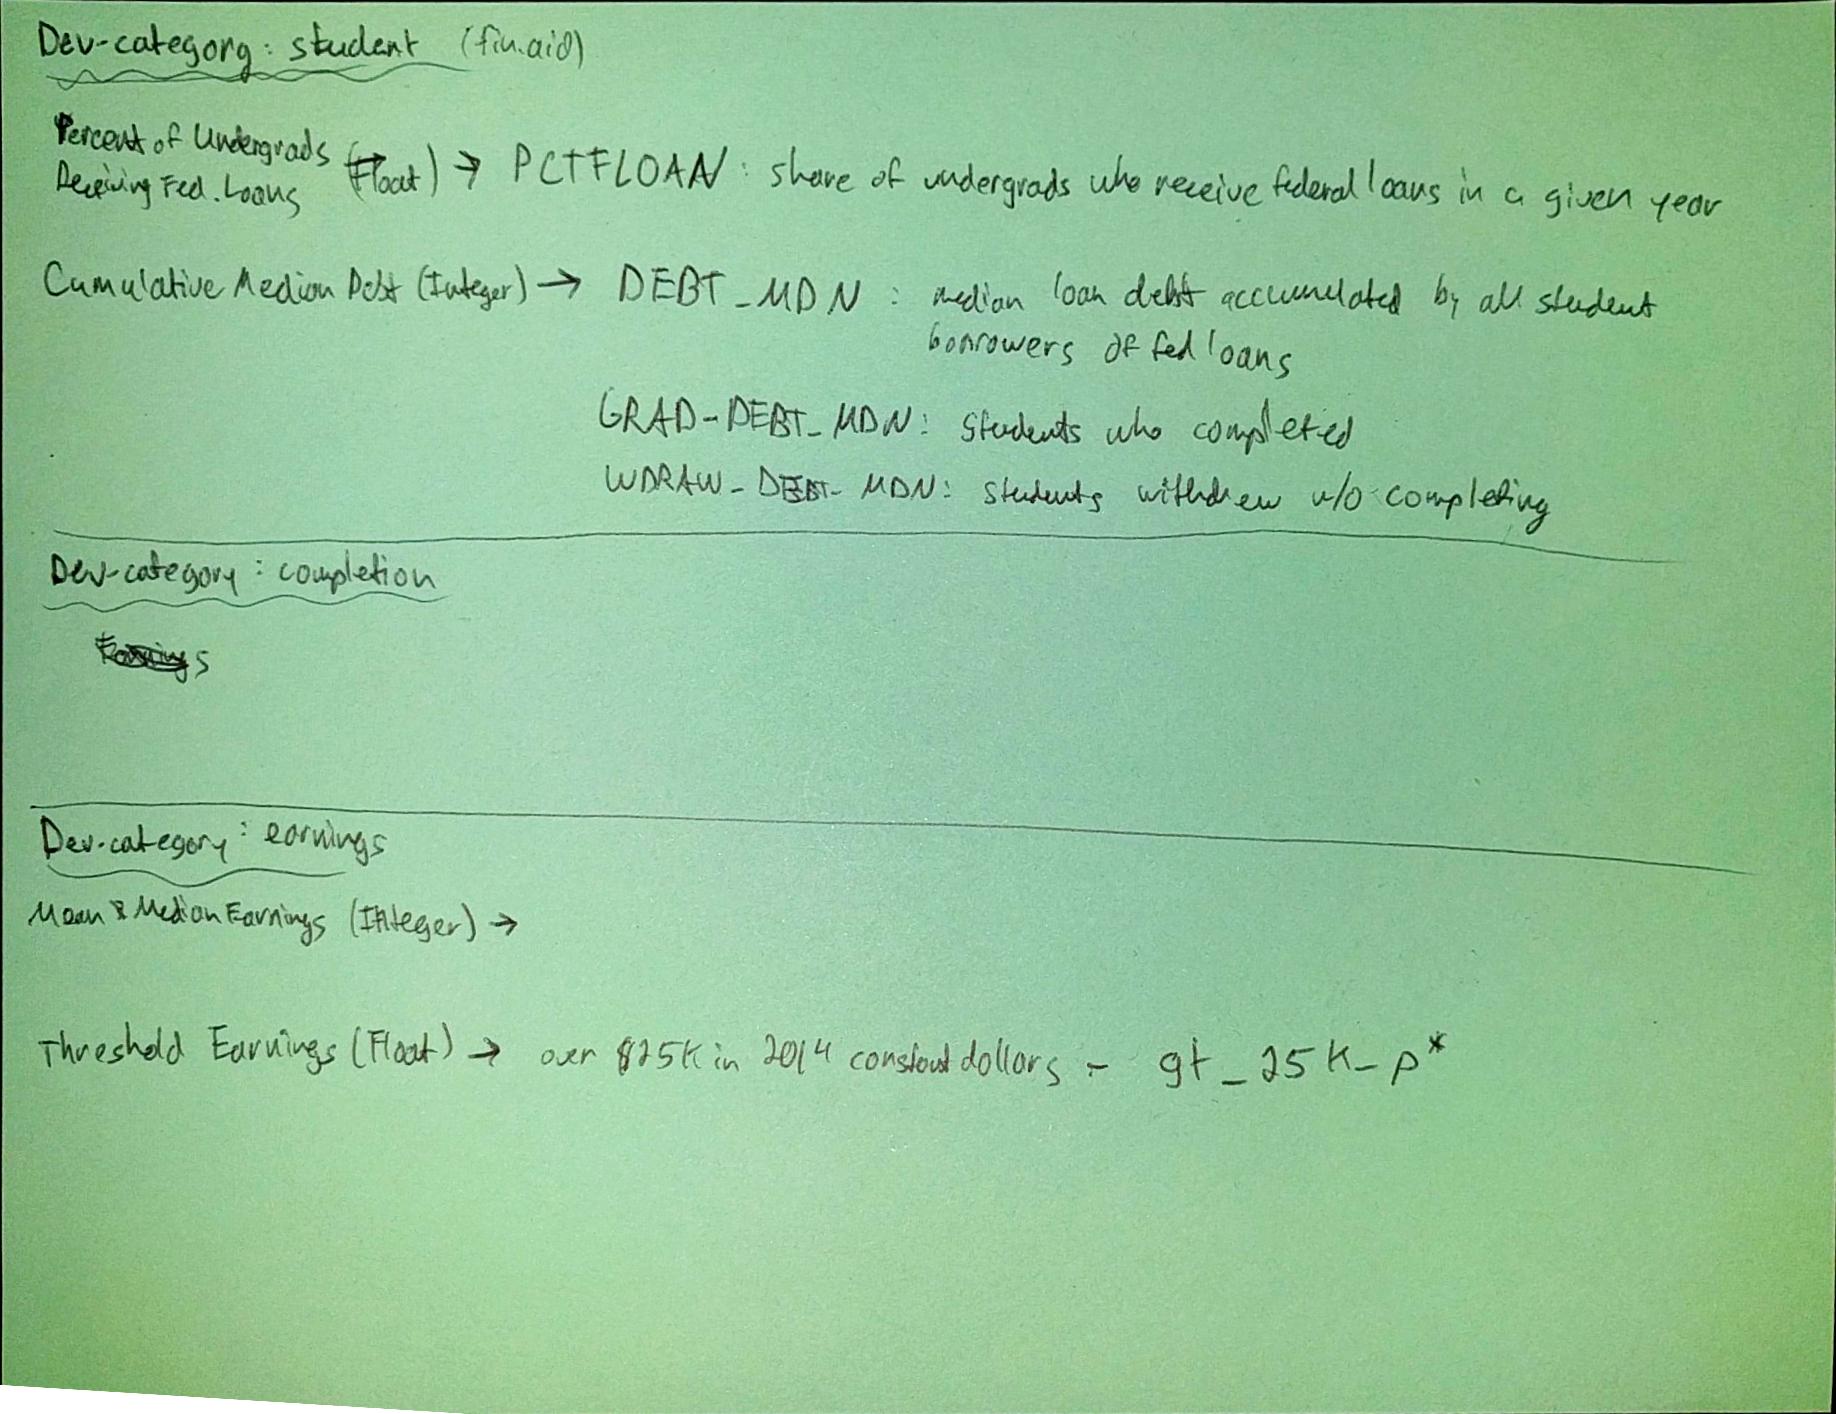 Dev-category: student (fin.aid)
Percent of Undergrads
Receiving Fed. Loans (Float) → PCTFLOAN: share of undergrads who receive federal loans in a given year
Cumulative Median Debt (Integer) → DEBT_MDN: median loan debt accumulated by all student
borrowers of fed loans
GRAD-DEBT_MDN: students who completed
WDRAW_DEBT_MDN: students withdrew w/o completing
Dev-category: completion
Dev-category: earnings
Mean & Median Earnings (Integer) →
Threshold Earnings (Float) → over $25K in 2014 constant dollars - gt_25K_p*